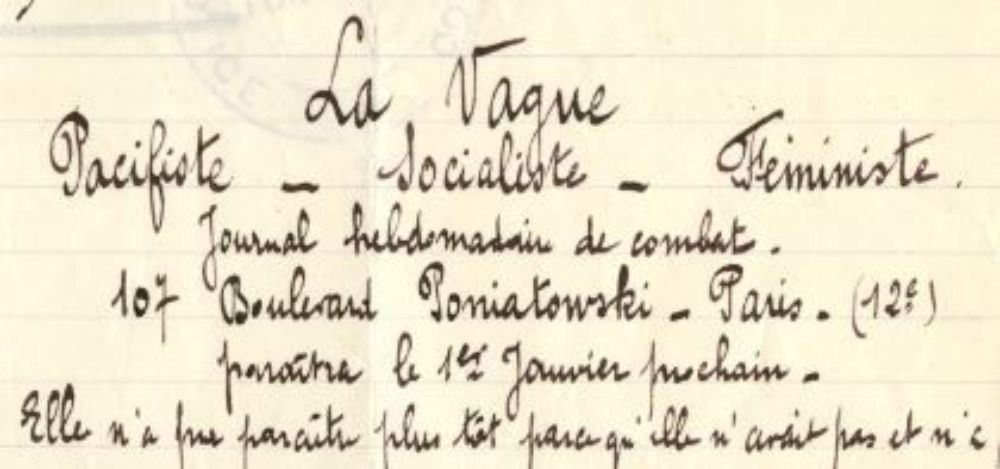 La Vague
Pacifiste - Socialiste - Féministe.
Journal hebdomadaire de combat.
107 Boulevard Poniatowski - Paris - (12e)
paraîtra le 1er Janvier prochain -
Elle n'a pu paraître plus tôt parce qu'elle n'avait pas et n'a